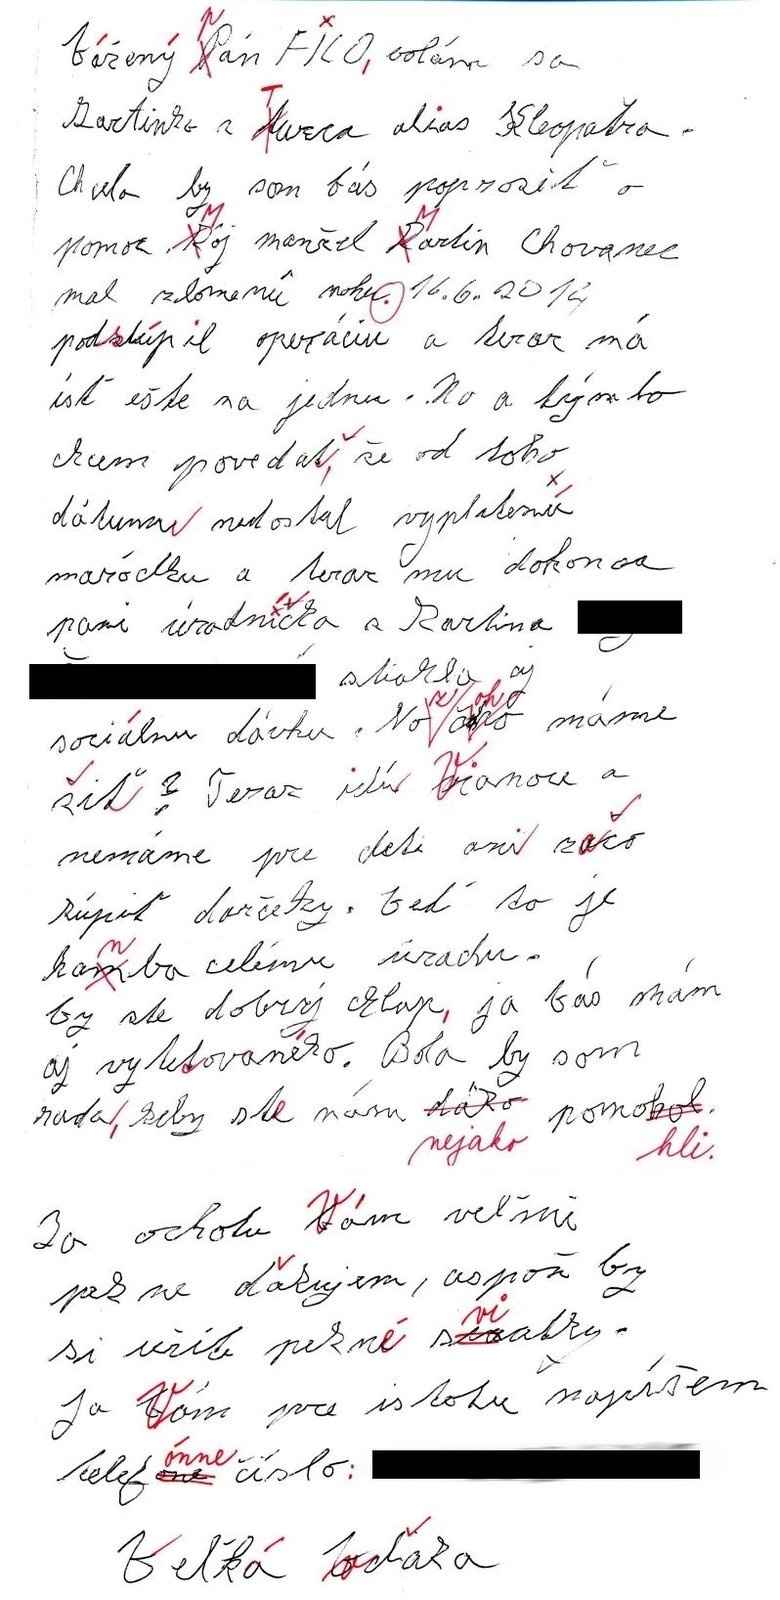 Vážený Pán FICO, volám sa
Martinka z Turca alias Kleopatra.
Chcela by som Vás poprosiť o
pomoc. Môj manžel Martin Chovanec
mal zlomenú nohu. 16.6.2014
podstúpil operáciu a teraz má
ísť ešte na jednu. No a týmto
chcem povedať, že od toho
dátumu nedostal vyplatenú
maródku a teraz mu dokonca
pani úradníčka z Martina
stiahla aj
sociálnu dávku. No ako máme
žiť? Teraz idú Vianoce a
nemáme pre deti ani začo
kúpiť darčeky. Veď to je
hanba celému úradu.
Vy ste dobrý chlap, ja Vás mám
aj vytetovaného. Bola by som
rada, keby ste nám dáko pomohol.
nejako hli.
Za ochotu Vám veľmi
pekne ďakujem, aspoň by
si užite pekné sviatky.
Ja Vám pre istotu napíšem
telefónne číslo:
Veľká vďaka